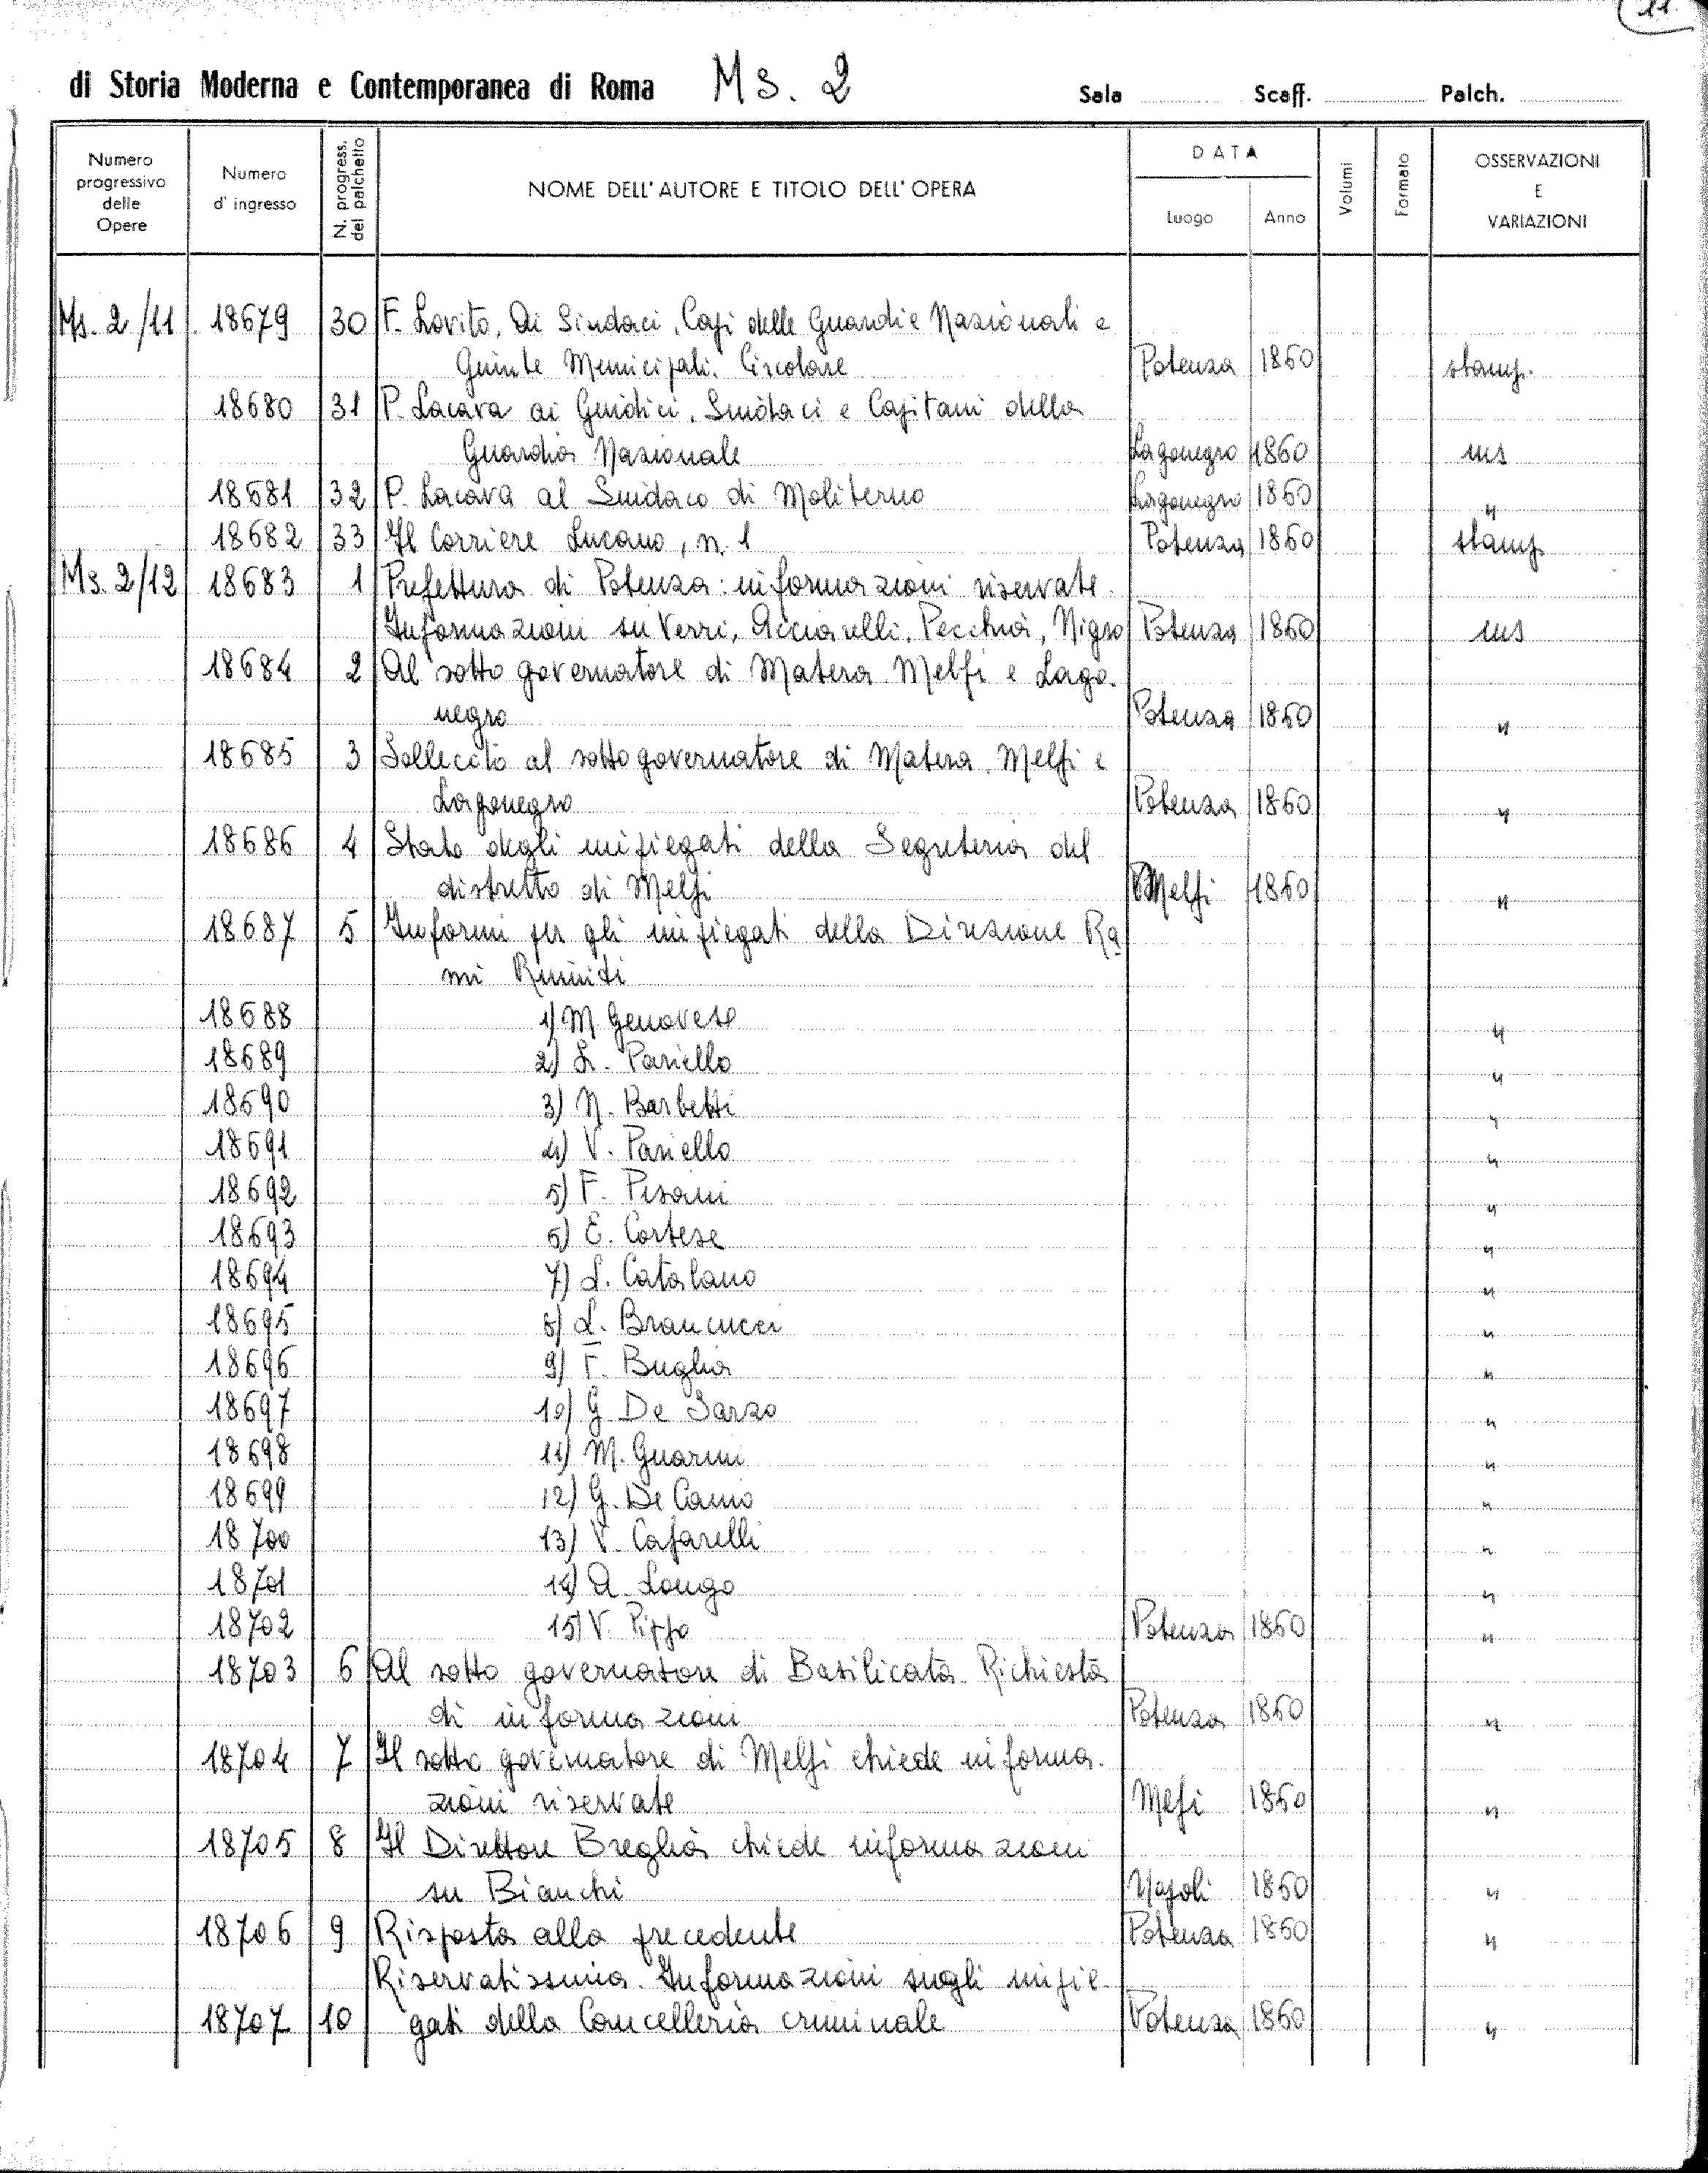 11.
di Storia Moderna e Contemporanea di Roma Ms. 2 Sala Scaff. Palch.
Numero progressivo delle Opere Numero d'ingresso N. progress. del palchetto NOME DELL'AUTORE E TITOLO DELL'OPERA DATA Luogo Anno Volumi Formato OSSERVAZIONI E VARIAZIONI
Ms. 2/11 18679 30 F. Lovito, Ai Sindaci, Capi delle Guardie Nazionali e
Giunte Municipali. Circolare Potenza 1860 stamp.
18680 31 P. Lacava ai Giudici, Sindaci e Capitani della
Guardia Nazionale Lagonegro 1860 ms
18681 32 P. Lacava al Sindaco di Moliterno Lagonegro 1860 "
18682 33 Il Corriere Lucano, n. 1 Potenza 1860 stamp.
Ms. 2/12 18683 1 Prefettura di Potenza: informazioni riservate.
Informazioni su Verri, Acciarelli, Pecchia, Nigro Potenza 1860 ms
18684 2 Al sotto governatore di Matera Melfi e Lago-
negro Potenza 1860 "
18685 3 Sollecito al sotto governatore di Matera, Melfi e
Lagonegro Potenza 1860 "
18686 4 Stato degli impiegati della Segreteria del
distretto di Melfi Melfi 1860 "
18687 5 Informi per gli impiegati della Direzione Ra
mi Riuniti
18688 1) M. Genovese "
18689 2) L. Pariello "
18690 3) N. Barbetti "
18691 4) V. Pariello "
18692 5) F. Pisani "
18693 6) E. Cortese "
18694 7) L. Catalano "
18695 8) L. Brancucci "
18696 9) F. Buglia "
18697 10) G. De Sarzo "
18698 11) M. Guarini "
18699 12) G. De Camo "
18700 13) V. Cafarelli "
18701 14) A. Longo "
18702 15) V. Pippo Potenza 1860 "
18703 6 Al sotto governatore di Basilicata. Richiesta
di informazioni Potenza 1860 "
18704 7 Il sotto governatore di Melfi chiede informa-
zioni riservate Mefi 1860 "
18705 8 Il Direttore Breglia chiede informazioni
su Bianchi Napoli 1860 "
18706 9 Risposta alla precedente Potenza 1860 "
Riservatissima. Informazioni sugli impie-
18707 10 gati della Cancelleria criminale Potenza 1860 "